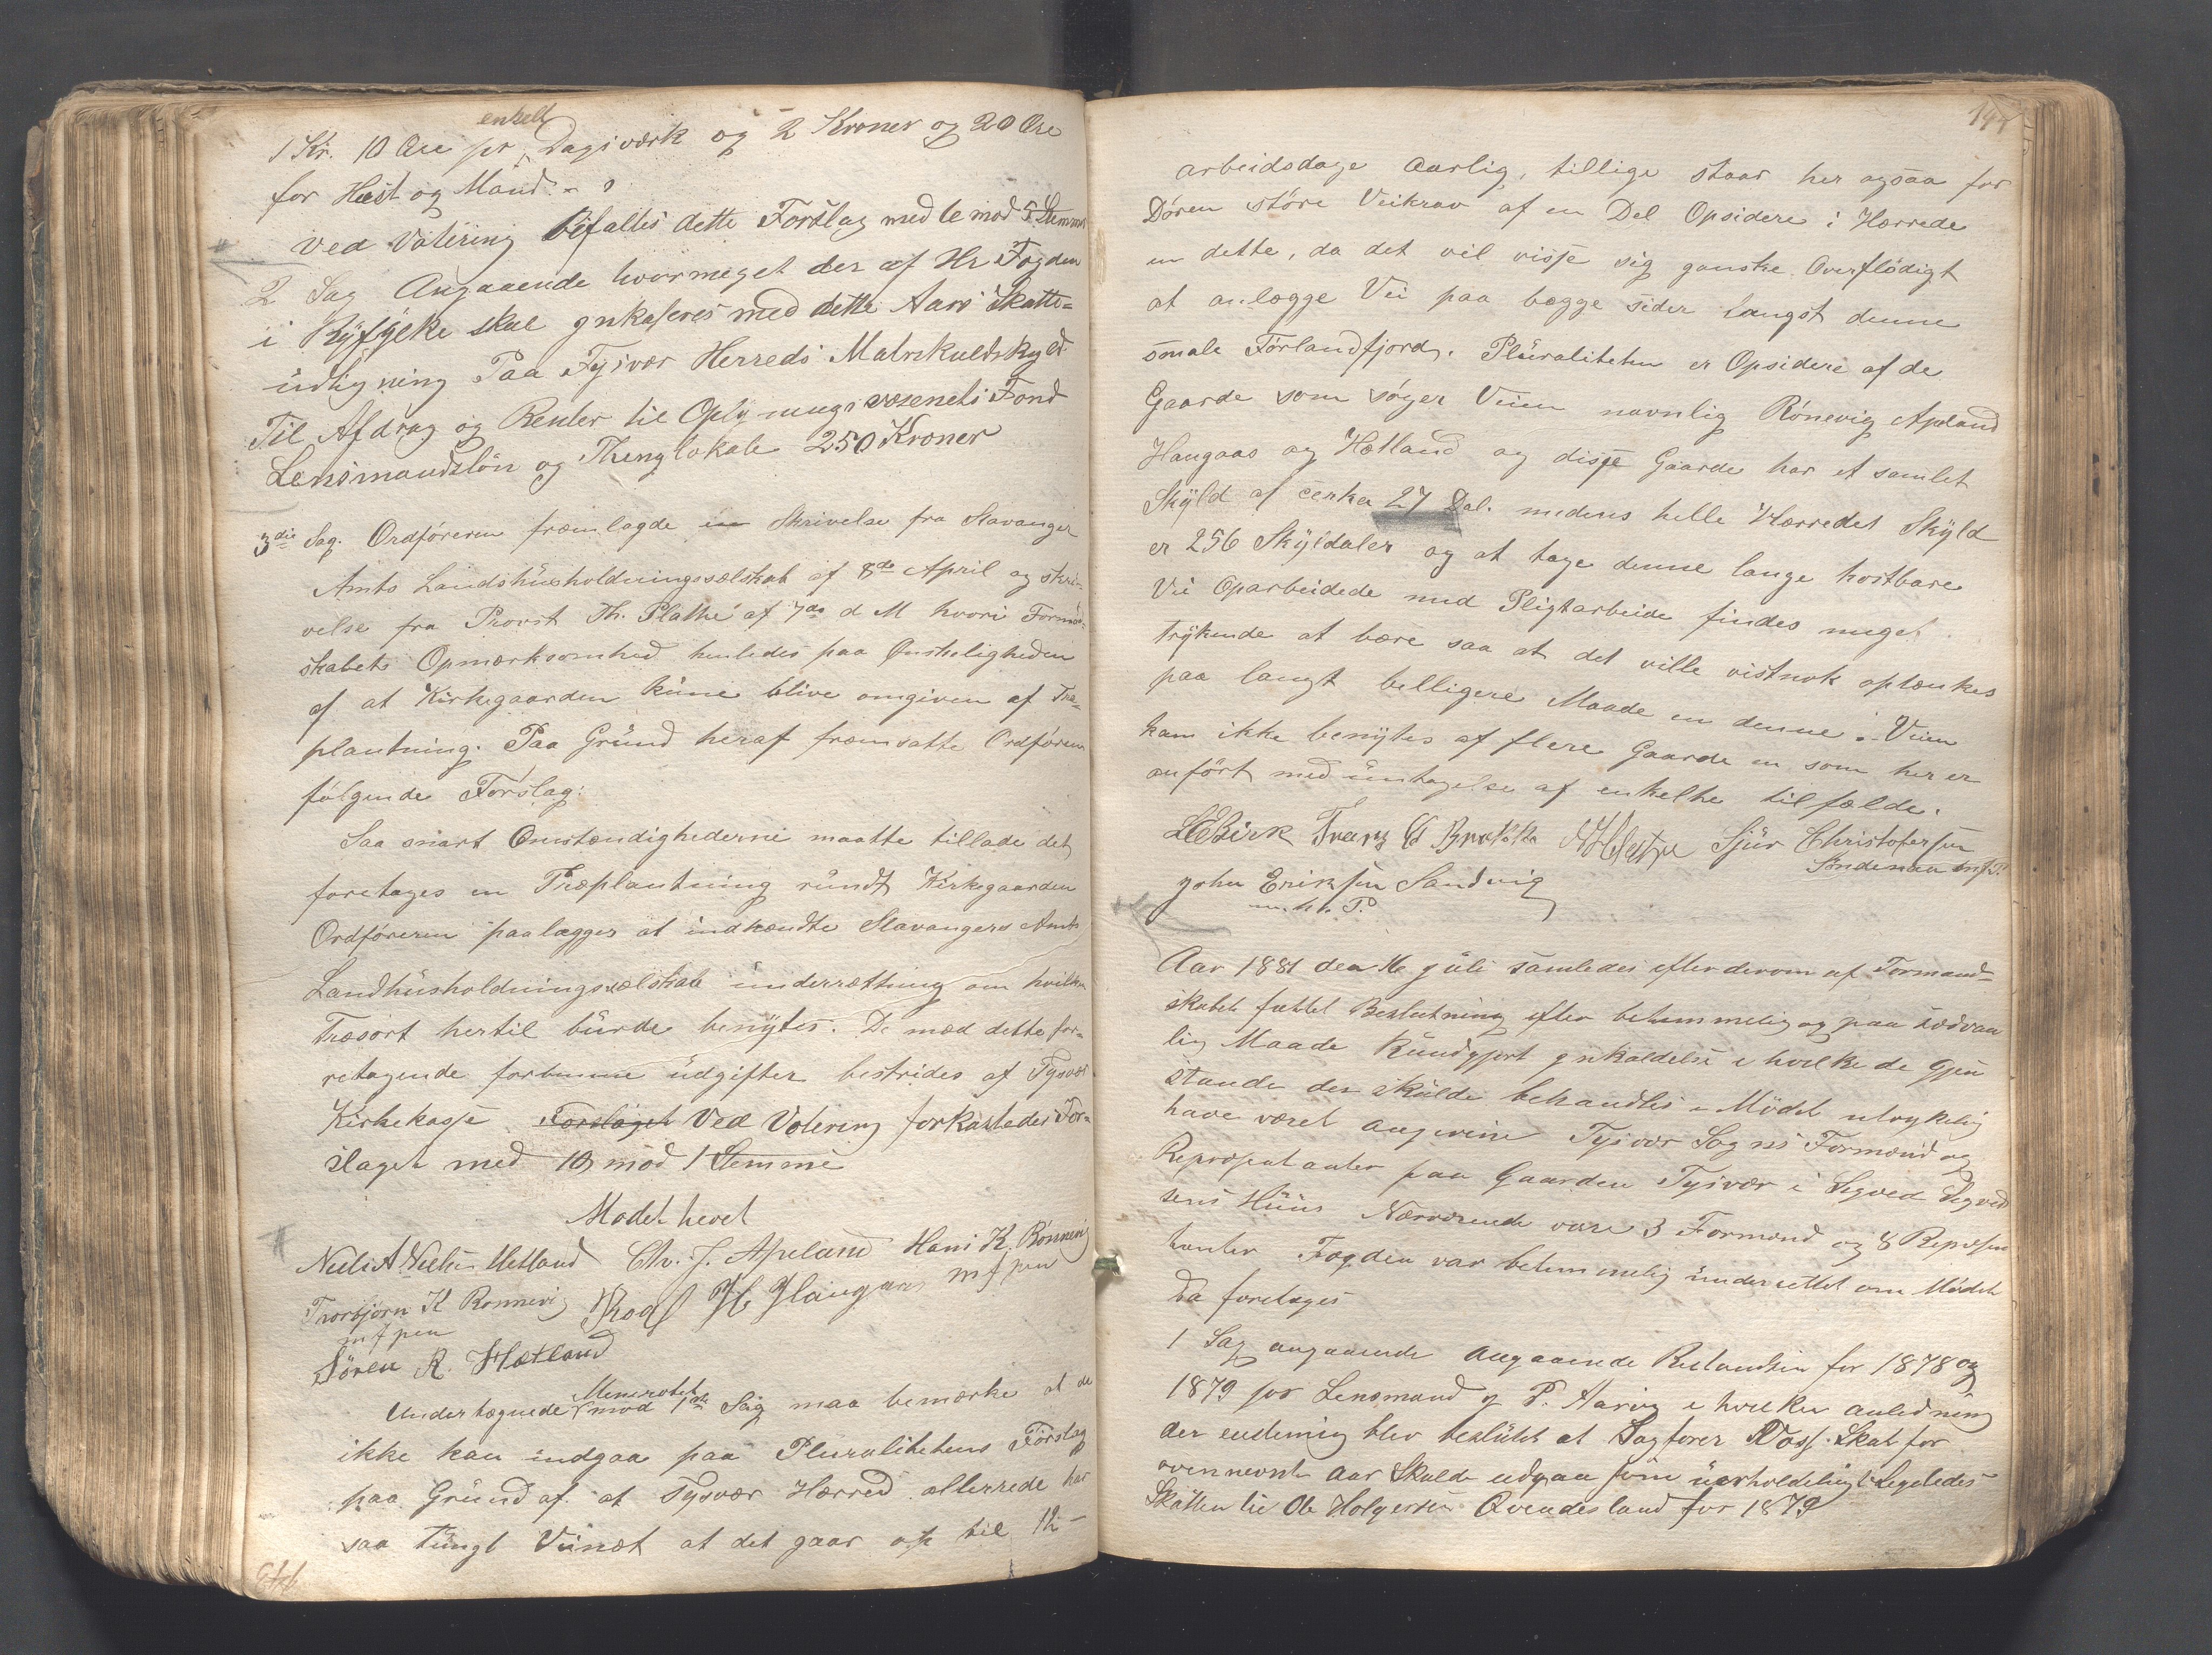 enkelt
1 Kr. 10 Øre pr Dagsværk og 2 Kroner og 20 Øre
for Hæst og Mand.
Ved Votering bifaltes dette Forslag med 6 mod 5 Stemmer
2 Sag Angaaende hvormeget der af Hr Fogden
i Ryfylke skal ynkaseres med dette Aars Skatte=
udligning Paa Tysvær Herreds Matrikulskyld
Til Afdrag og Renter til Oplysningsvæsenets Fond
Lensmandsløn og Thenglokale 250 Kroner
3die Sag. Ordføreren fremlagde en Skrivelse fra Stavanger
Amts Landshusholdningssælskab af 8de April og skri-
velse fra Provst Th. Plathe af 7de d M hvori Formæ-
skabets Opmærksomhed henledes paa Ønskeligheden
af at Kirkegaarden kune blive omgiven af Træ-
plantning. Paa Grund heraf fremsatte Ordføreren
følgende Forslag:
Saa snart Omstændighederne maatte tillade det
foretages en Træplantning rundt Kirkegaarden
Ordføreren paalægges at indhændte Stavangers Amts
Landhusholdningsselskab underrættning om hvilken
Træsort hertil burde benyttes. De med dette for-
retagende forbunne udgifter bestrides af Tysvær
Kirkekasse Forslaget Ved Votering forkastedes For-
slaget med 10 mod 1 Stemme
Mødet hevet
Neels A Neelsen Hetland Chr. J. Apeland Hans K. Rønnevig
Thorbjørn K Rønnevig Roal H Haugaas m f pen
m f pen
Søren R. Hætland
Menerotet
Undertegnede mod 1ste Sag maa bemærke at de
ikke kan indgaa paa Pluralitetens Forslag
paa Grund af at Tysvær Hærred allerrede har
saa tungt Viinæt at det gaar op til 12-
144
arbeidsdage aarlig, tillige staar her ogsaa for
Døren støre Veikrav af en Del Opsidere i Hærrede
en dette, da det vil visse sig ganske Overflødigt
at anlægge Vei paa begge sider langst denne
smale Førlandfjord. Pluraliteten er Opsidere af de
Gaarde som søger Veien navnlig Rønevig Apeland
Haugaas og Hætland og disse Gaarde har et samlet
Skyld af cerka 27 Dal. medens helle Hærredet Skyld
er 256 Skyldaler og at tage denne lange kostbare
Vei Oparbeidede med Pligtarbeide findes meget
trykende at bære saa at det ville vistnok optænkes
paa langt belligere Maade en denne. Veien
kan ikke benytes af flere Gaarde en som her er
anført med untagelse af enkelte tilfælde.
LEBirk Franz Sjur Christofersen
Søndenaa mfP.
John Eriksen Sandvig
m. h. P.
Aar 1881 den 16 Juli samledes efter derom af Formand-
skabet fattet Beslutning efter betimmelig og paa sædvan
lig Maade Kundgjort ynkaldelse i hvilke de Gjen
stande der skulde behandles i Mødet utrykelig
have været angivine Tysvær Sogns Formænd og
Repræsentanter paa Gaarden Tysvær i Sigved Sigved
sens Huus Nærværende vare 3 Formænd og 8 Repræsen
tanter Fogden var betimmelig underrettet om Mødet
Da foretages
1 Sag angaaende Angaaende Restantsen for 1878 og
1879 for Lensmand P. Aarvig i hvilken anledning
der endemig blev beslutet at Sagfører Voss. Skat for
ovennevnte Aar Skulde udgaa som uerholdeligt Ligeledes
Skatten til Ole Holgersen Qvendesland for 1879